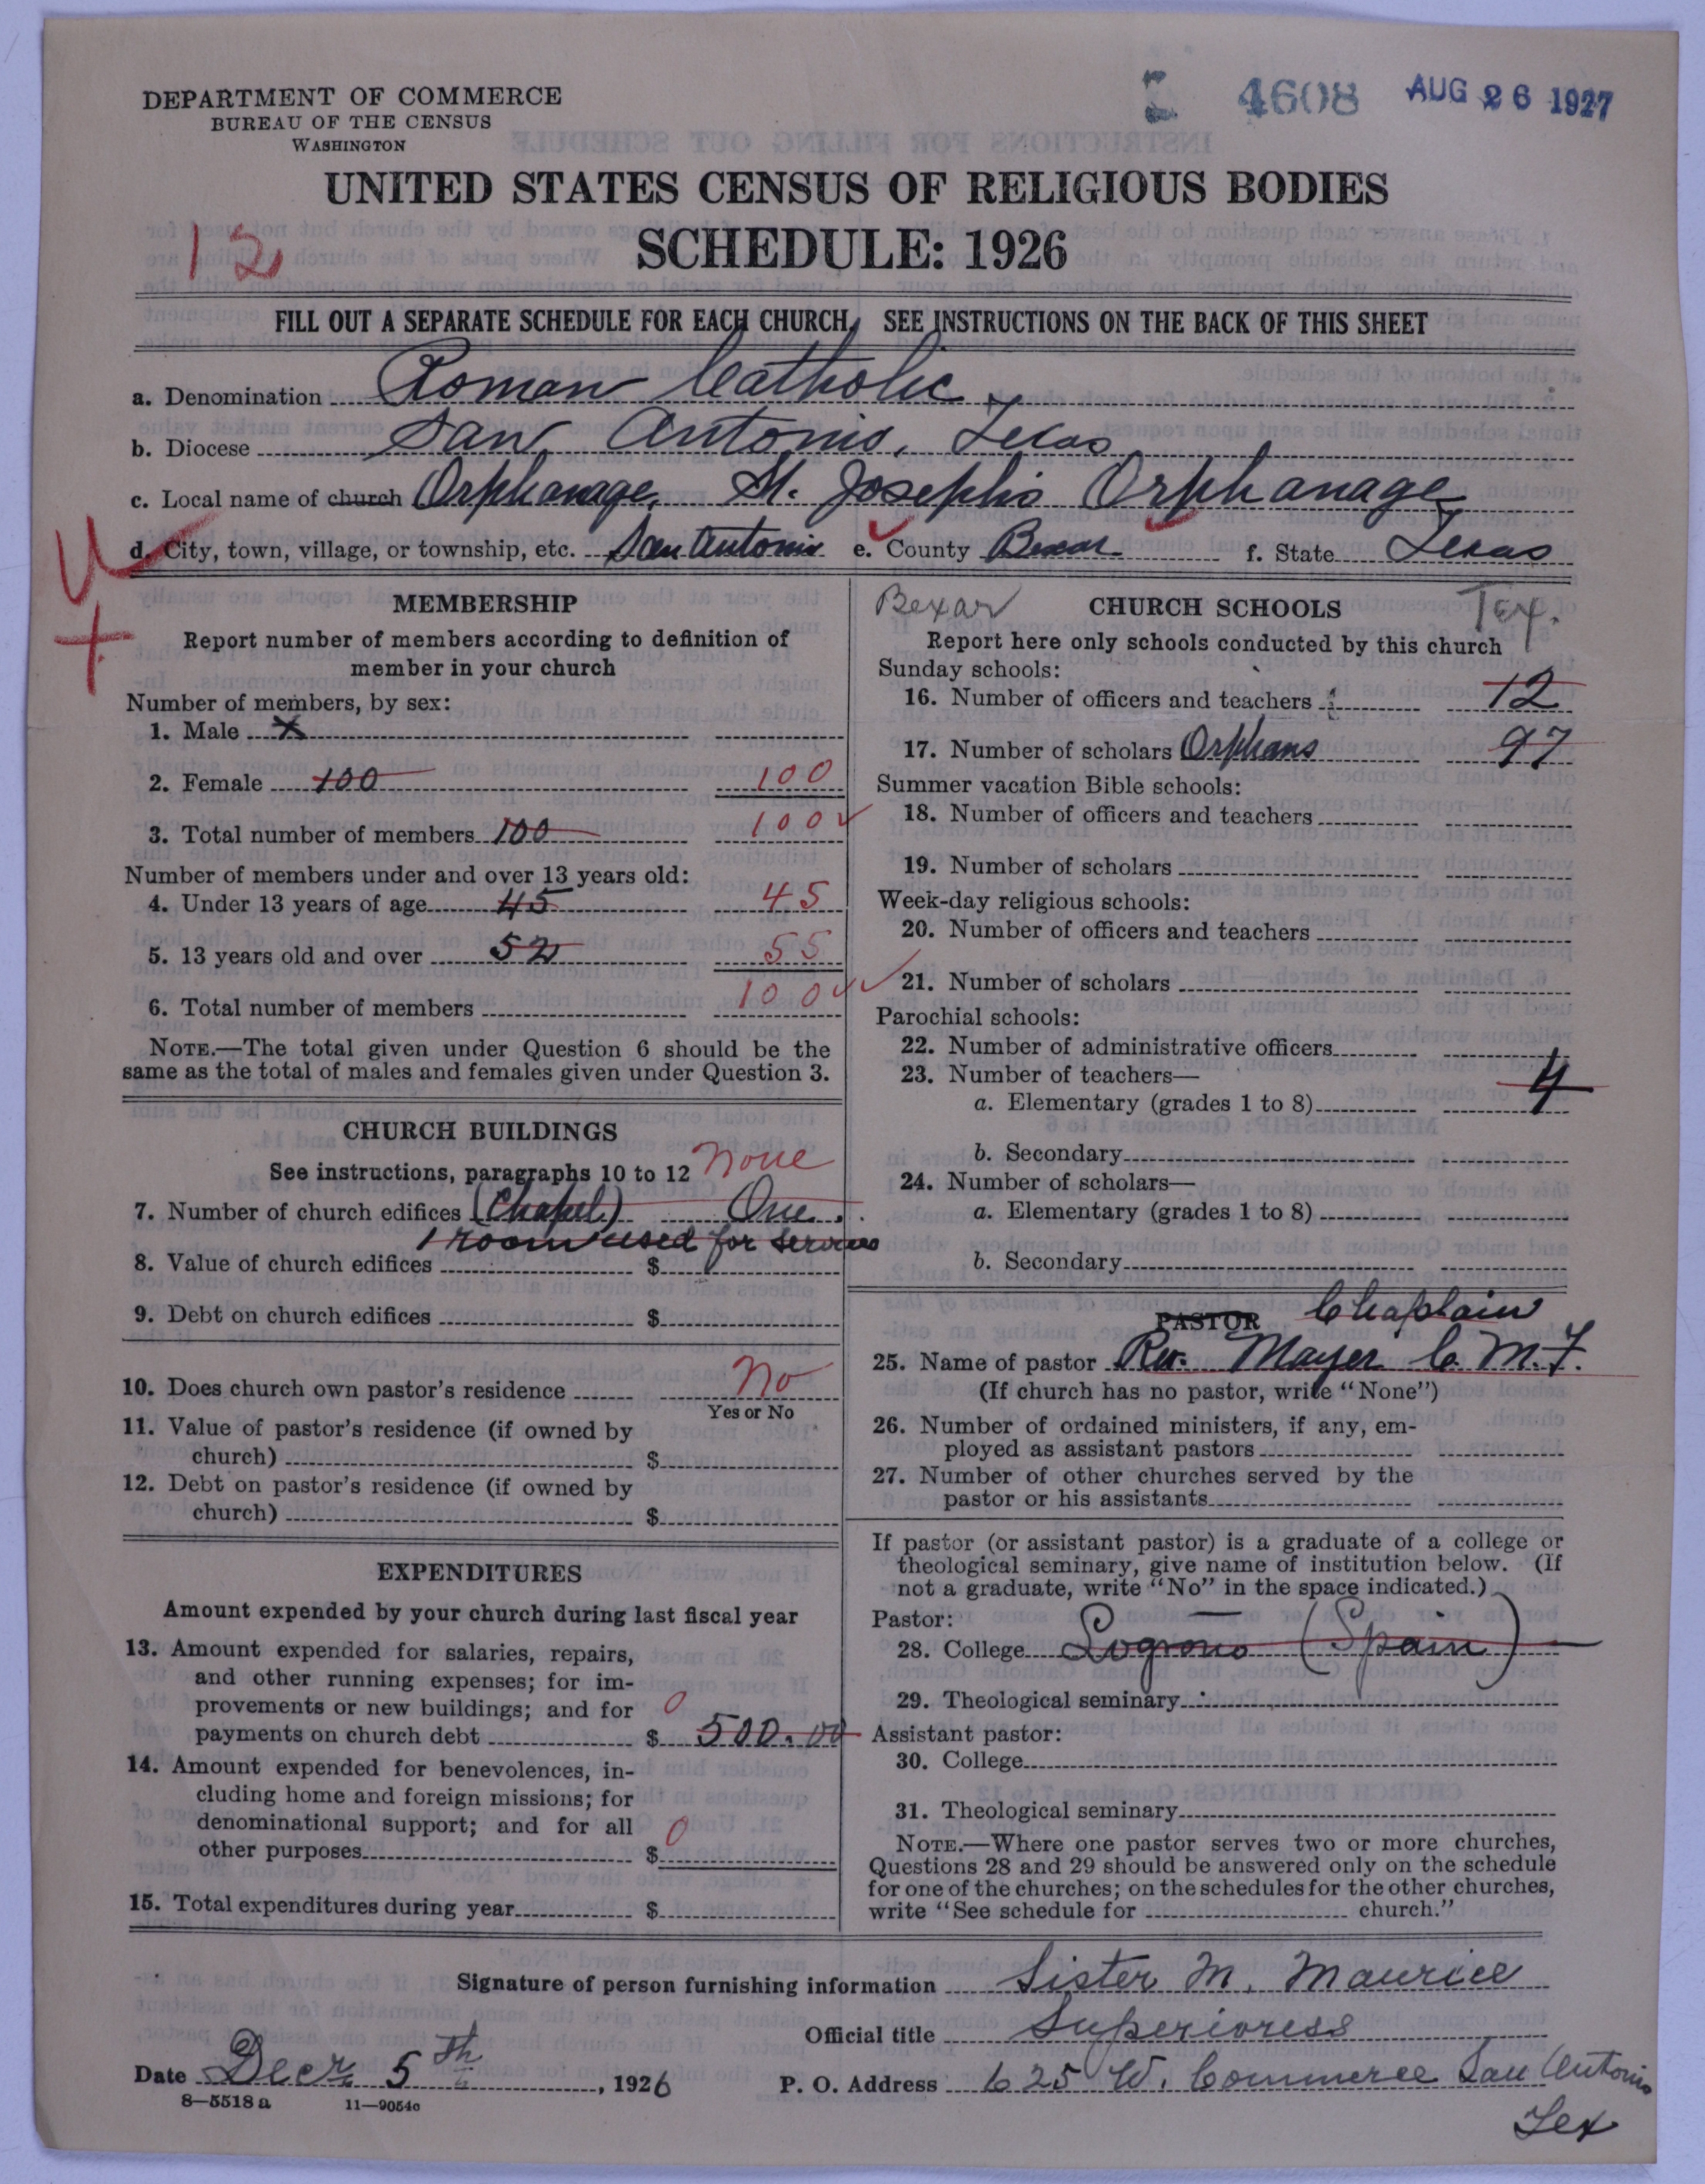 4608 AUG 26 1927
DEPARTMENT OF COMMERCE
BUREAU OF THE CENSUS
WASHINGTON
UNITED STATES CENSUS OF RELIGIOUS BODIES
12
SCHEDULE: 1926
FILL OUT A SEPARATE SCHEDULE FOR EACH CHURCH. SEE INSTRUCTIONS ON THE BACK OF THIS SHEET
a. Denomination Roman Catholic
b. Diocese San Antonio, Texas
c. Local name of church Orphanage, St. Joseph's Orphanage
d. City, town, village, or township, etc. San Antonio e. County Bexar f. State Texas
MEMBERSHIP
Report number of members according to definition of
member in your church
Number of members, by sex:
1. Male x
2. Female 100 100
3. Total number of members 100 100
Number of members under and over 13 years old:
4. Under 13 years of age 45 45
5. 13 years old and over 52 55
6. Total number of members 100
NOTE.—The total given under Question 6 should be the
same as the total of males and females given under Question 3.
CHURCH BUILDINGS
See instructions, paragraphs 10 to 12 None
7. Number of church edifices (Chapel) One.
1 room used for services
8. Value of church edifices $
9. Debt on church edifices $
10. Does church own pastor's residence No
Yes or No
11. Value of pastor's residence (if owned by
church) $
12. Debt on pastor's residence (if owned by
church) $
EXPENDITURES
Amount expended by your church during last fiscal year
13. Amount expended for salaries, repairs,
and other running expenses; for im-
provements or new buildings; and for 0
payments on church debt $ 500.00
14. Amount expended for benevolences, in-
cluding home and foreign missions; for
denominational support; and for all 0
other purposes $
15. Total expenditures during year $
Bexar CHURCH SCHOOLS Tex.
Report here only schools conducted by this church
Sunday schools:
16. Number of officers and teachers 12
17. Number of scholars Orphans 97
Summer vacation Bible schools:
18. Number of officers and teachers
19. Number of scholars
Week-day religious schools:
20. Number of officers and teachers
21. Number of scholars
Parochial schools:
22. Number of administrative officers
23. Number of teachers—
a. Elementary (grades 1 to 8) 4
b. Secondary
24. Number of scholars—
a. Elementary (grades 1 to 8)
b. Secondary
PASTOR Chaplain
25. Name of pastor Rev. Mayer C. M. F.
(If church has no pastor, write "None")
26. Number of ordained ministers, if any, em-
ployed as assistant pastors
27. Number of other churches served by the
pastor or his assistants
If pastor (or assistant pastor) is a graduate of a college or
theological seminary, give name of institution below. (If
not a graduate, write "No" in the space indicated.)
Pastor:
28. College Logrono (Spain)
29. Theological seminary
Assistant pastor:
30. College
31. Theological seminary
NOTE.—Where one pastor serves two or more churches,
Questions 28 and 29 should be answered only on the schedule
for one of the churches; on the schedules for the other churches,
write "See schedule for church."
Signature of person furnishing information Sister M. Maurice
Official title Superioress
Date Decr. 5th, 1926 P. O. Address 625 W. Commerce San Antonio
Tex
8—5518 a 11—9054c